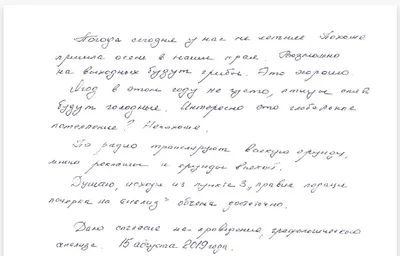 Погода сегодня у нас не летняя. Похоже
пришла осень в наши края. Возможно
на выходных будут грибы. Это хорошо.
Ягод в этом году не густо, птицы
будут голодные. Интересно это глобальное
потепление? Наконец.
По радио транслируют всякую ерунду,
много рекламы и ерунды всякой.
Думаю, исходя из пункта 3, правил подачи
почерка на анализ объёма достаточно.
Даю согласие на проведение графологического
анализа. 15 августа 2019 года.